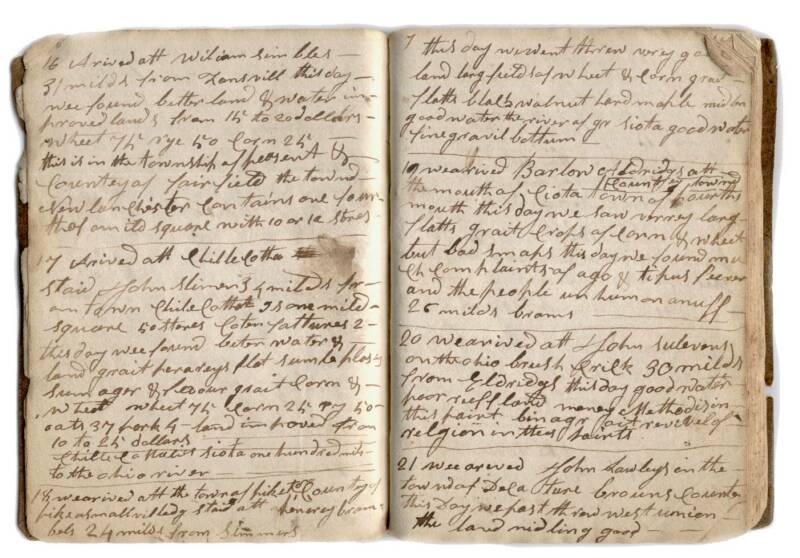 16 Arived att William Simbles
31 milds from Zansvill this day
wee found better land & water im
proved lands from 15 to 20 dollars
wheet 75 rye 50 Corn 25
this is in the township of &
Countey of fairfield the town
New lanChister Contains one four
th of a mild square with 10 or 12 stores
17 Arived att Chillecotha
staid John Slimens 4 milds fr
om town Chilecothe Is one mild
square 50 stores Coten factures 2
this day wee found beter water &
land grait perareys plot
& flour grait Corn &
wheet wheet 75 Corn 25 ry 50
oats 37 pork 4 land improved from
10 to 25 dollars
siota one hundred mls
to the ohio river
18 we arived att the town of piketo Countey of
pike a small villedg staid att henerey bram
bels 24 milds from Slimmers
7 this day we went threw verey
land larg fields of wheet & Corn grait
flatts black walnut hard maple
good water the river of gr siota good water
fine gravil bottum
19 we arived Barlow Eldridgs att
the mouth of Ciota town of pourths
Countey town
mouth this day we saw verrey larg
flatts grait Crops of Corn & wheet
but bad smaps this day we found mu
ch Complaints of ago & tipus feever
and the people un human anuff
26 milds brams
20 we arived att John sulevens
on the ohio brush Crick 30 milds
from Eldridgs this day good water
poor ruff land money Methodis in
this paint a revivel of
relgion in thees paints
21 we arived John Lawleys in the
town of DeCature browns Countey
this Day we past threw west union
the land midling good